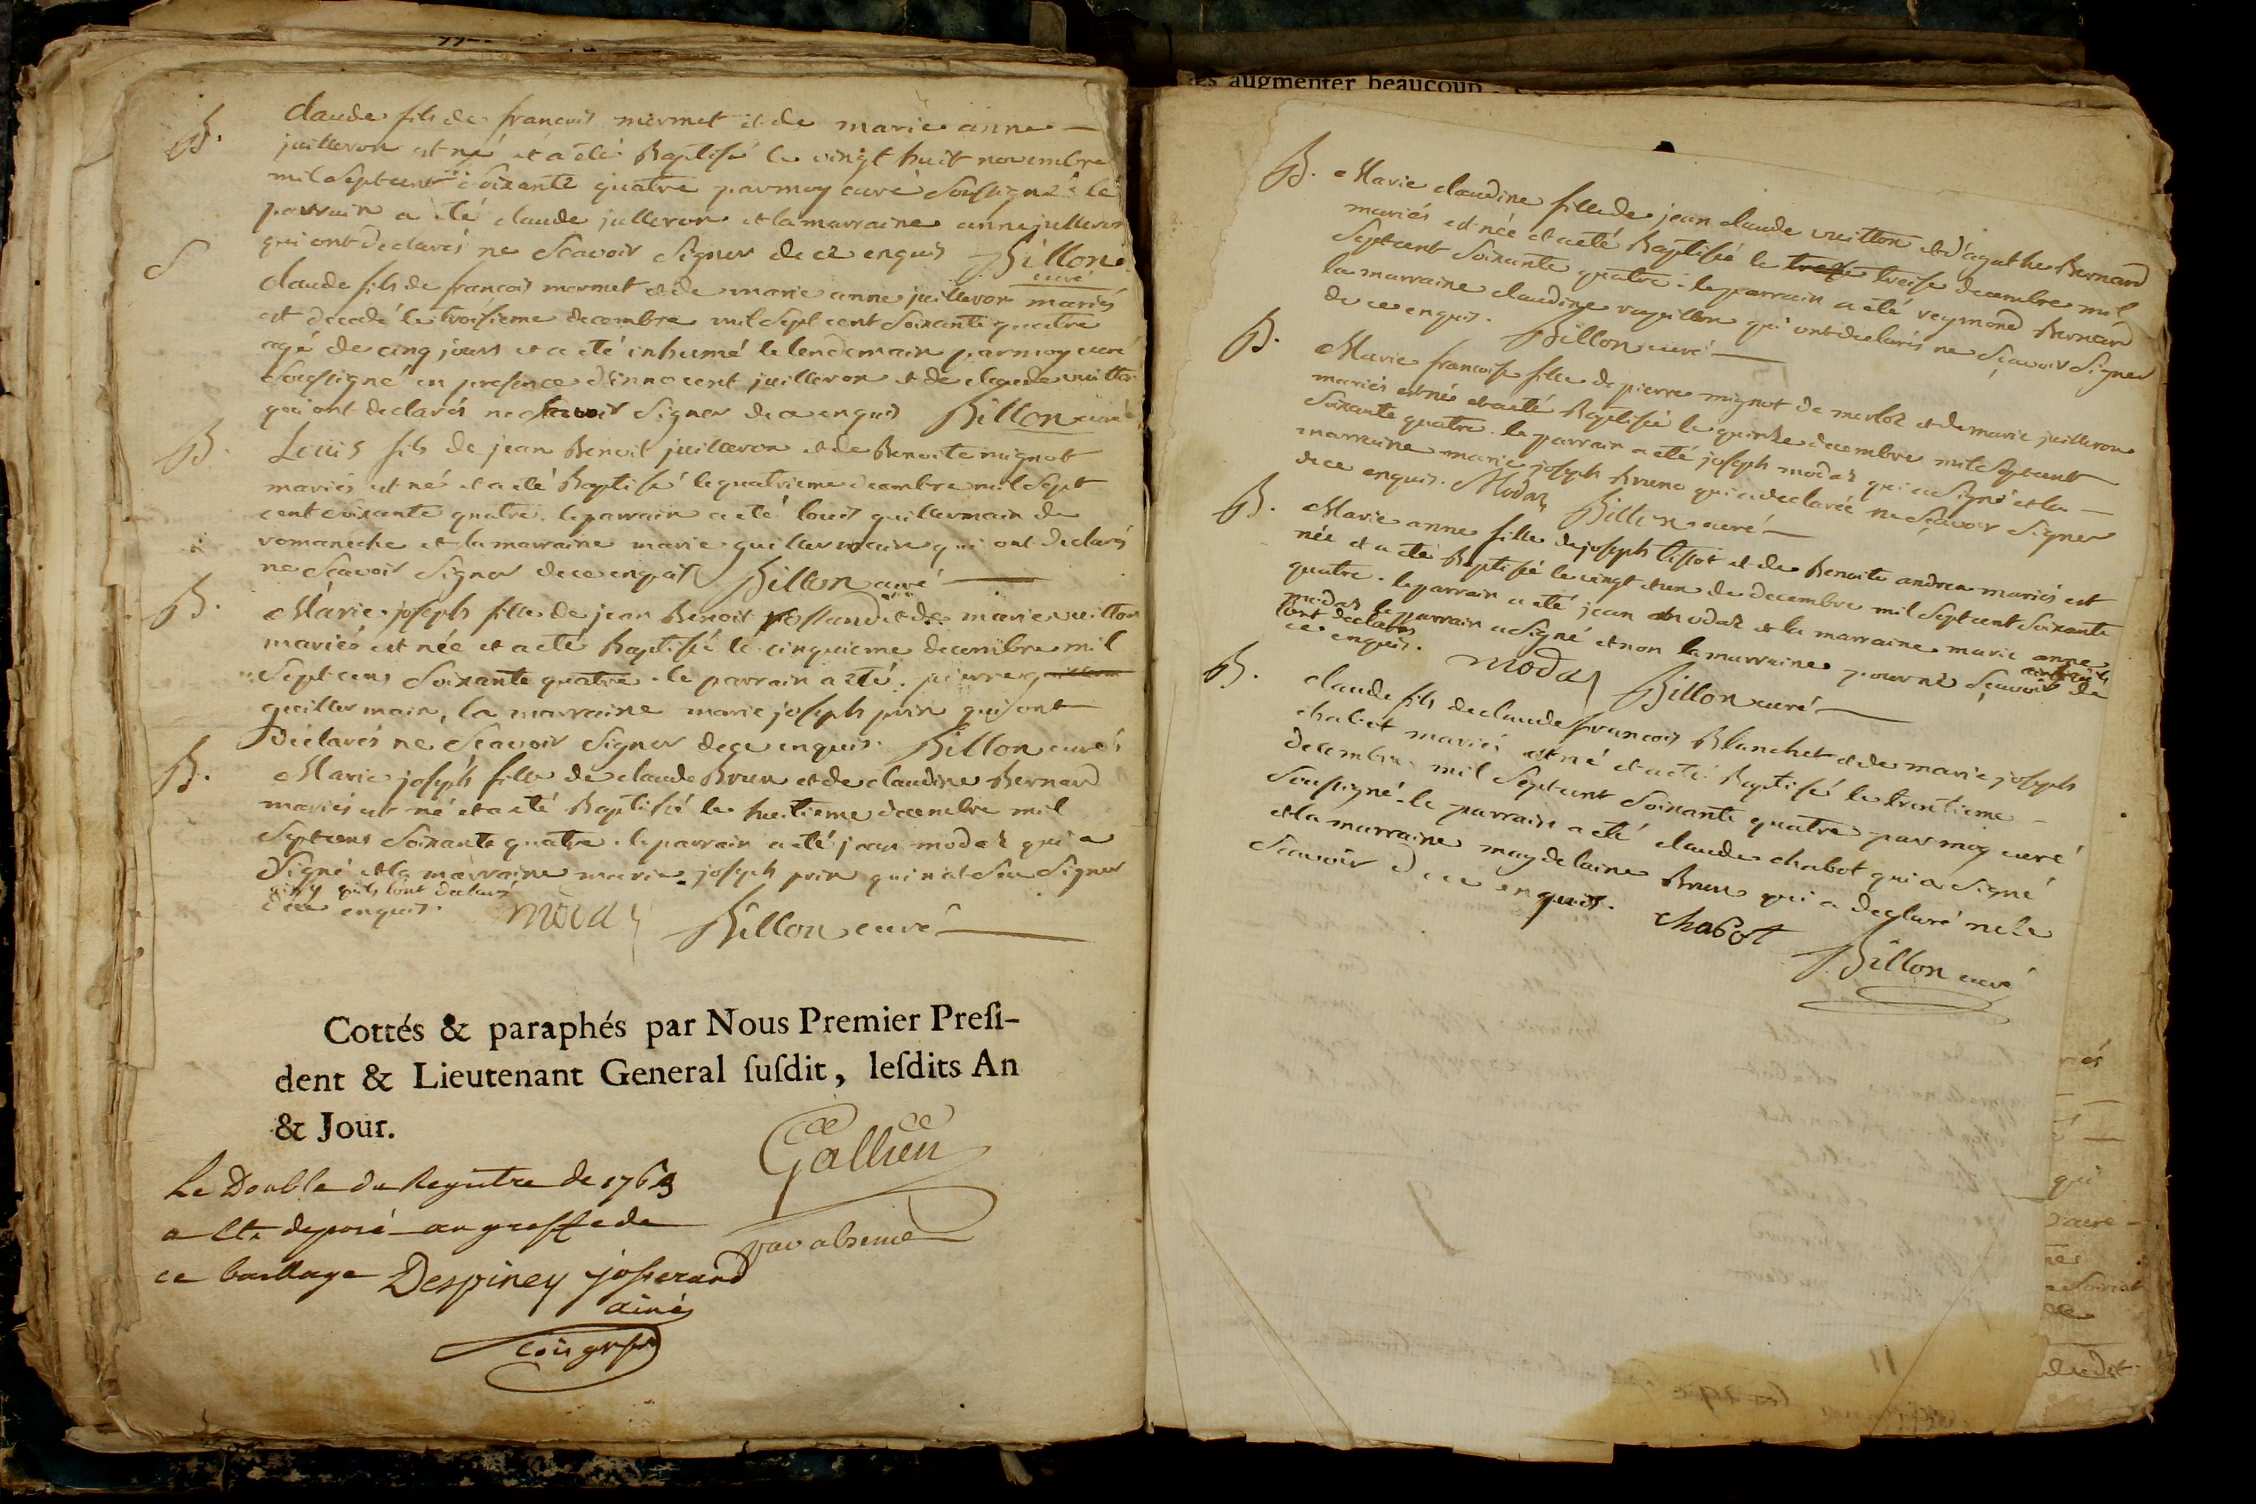 B. claude fils de francois mermet et de marie anne
juilleron est né et a été Baptisé le vingt huit novembre
mil sept cent soixante quatre par moy curé soussigné. le
parrain a été claude julleron et la marraine anne julleron
qui ont declarés ne scavoir signer de ce enquis Billon
curé
S claude fils de francois mermet et de marie anne juilleron mariés
est decedé le troisieme decembre mil sept cent soixante quatre
agé de cinq jours et a été inhumé le lendemain par moy curé
soussigné en presence d'innocent juilleron et de claude vuitton
qui ont declarés ne scavoir signer de ce enquis Billon curé
B. Louis fils de jean Benoit juilleron et de Benoite mignot
mariés est né et a été Baptisé le quatrieme decembre mil sept
cent soixante quatre. le parrain a été louis guillermain de
romaneche et la marraine marie guillermain qui ont declarés
ne scavoir signer de ce enquis Billon curé
B. Marie joseph fille de jean Benoit et de marie vuitton
mariés est née et a été Baptisé le cinquieme decembre mil
sept cens soixante quatre. le parrain a été pierre
guillermain, la marraine marie joseph prin qui ont
Déclarés ne scavoir signer de ce enquis. Billon curé
B. Marie joseph fille de claude Brun et de claudine Bernard
mariés est né et a été Baptisé le huitieme decembre mil
sept cens soixante quatre. le parrain a été jean modas qui a
signé et la marraine marie joseph prin qui n'at sçu signer
ainsy qu'ils l'ont declaré
de ce enquis. modas Billon curé
Cottés & paraphés par Nous Premier Presi-
dent & Lieutenant General susdit, lesdits An
& Jour.
Gallien
Le Double du Registre de 1763
a Eté deposé au greffe de
ce bailliage Despiney josserand
ainé
B. Marie claudine fille de jean claude vuitton et d'agathe Bernard
mariés est née et a été Baptisé le treize treise decembre mil
sept cent soixante quatre. le parrain a été reymond Bernard
la marraine claudine vuitton qui ont declarés ne sçavoir signer
de ce enquis. Billon curé
B. Marie francoise fille de pierre mignot de merloz et de marie juilleron
mariés est née et a été Baptisée le quinze decembre mil sept cent
soixante quatre. le parrain a été joseph modas qui a signé et la
marraine marie joseph Brune qui a declarée ne sçavoir signer
de ce enquis. Modas Billon curé
B. Marie anne fille de joseph tissot et de Benoite andrea mariés est
née et a été Baptisée le vingt et un de decembre mil sept cent soixante
quatre. le parrain a été jean modas et la marraine marie anne
modas le parrain a signé et non la marraine pour ne sçavoir ainsi qu'ils
l'ont declarés de
ce enquis. modas Billon curé
B. claude fils de claude francois Blanchet et de marie joseph
chabot mariés est né et a été Baptisé le trentieme
decembre mil sept cent soixante quatre par moy curé
soussigné. le parrain a été claude chabot qui a signé
et la marraine magdelaine Brun qui a declaré ne le
scavoir de ce enquis. chabot
Billon curé